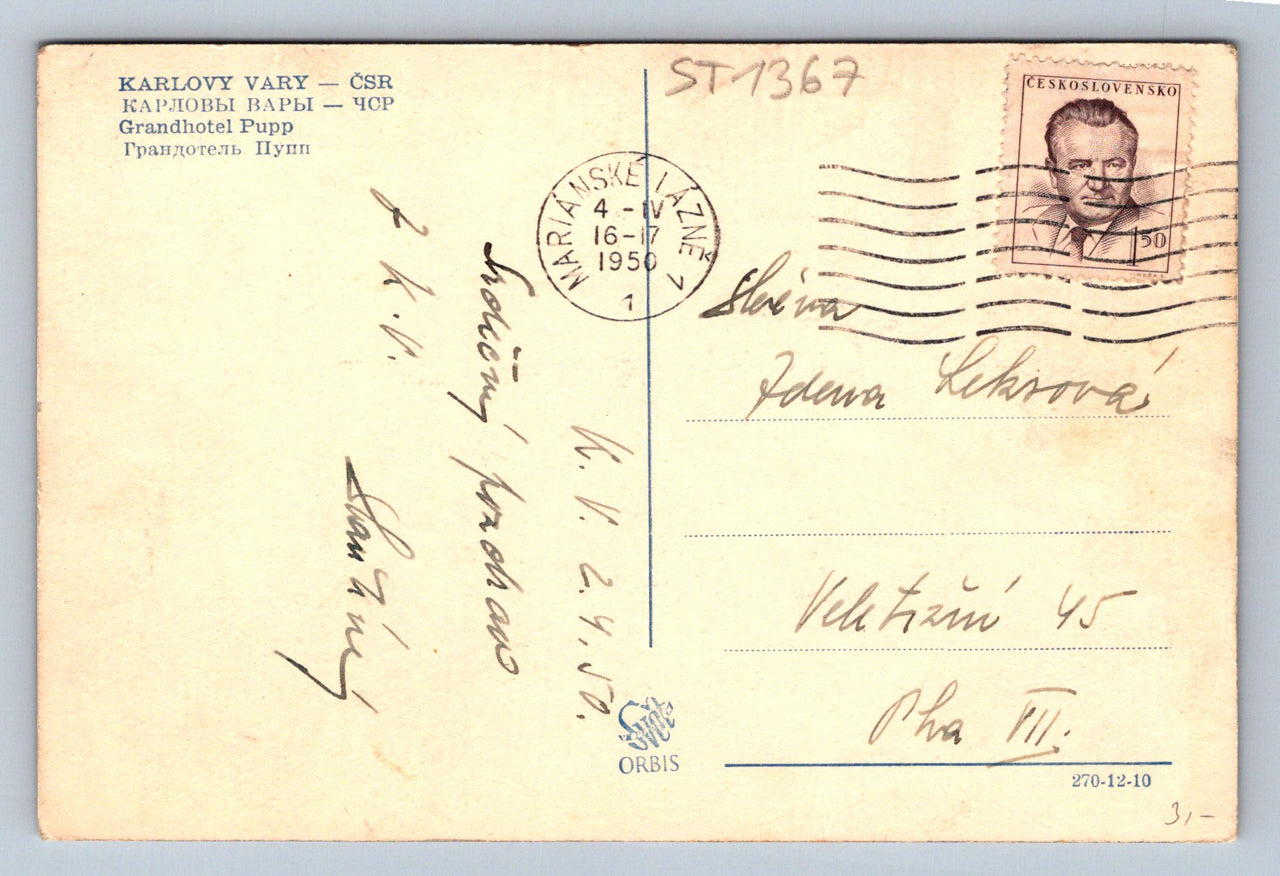 KARLOVY VARY — ČSR
КАРЛОВЫ ВАРЫ — ЧСР
Grandhotel Pupp
Грандотель Пупп
ST1367
ČESKOSLOVENSKO
1 50
MARIÁNSKÉ LÁZNĚ 1
4.-IV
16-17
1950
1
K. V. 2.4.50.
Srdečný pozdrav
z K. V.
Slečna
Zdena
Veletržní 45
Pha VII.
ORBIS
270-12-10
3,-